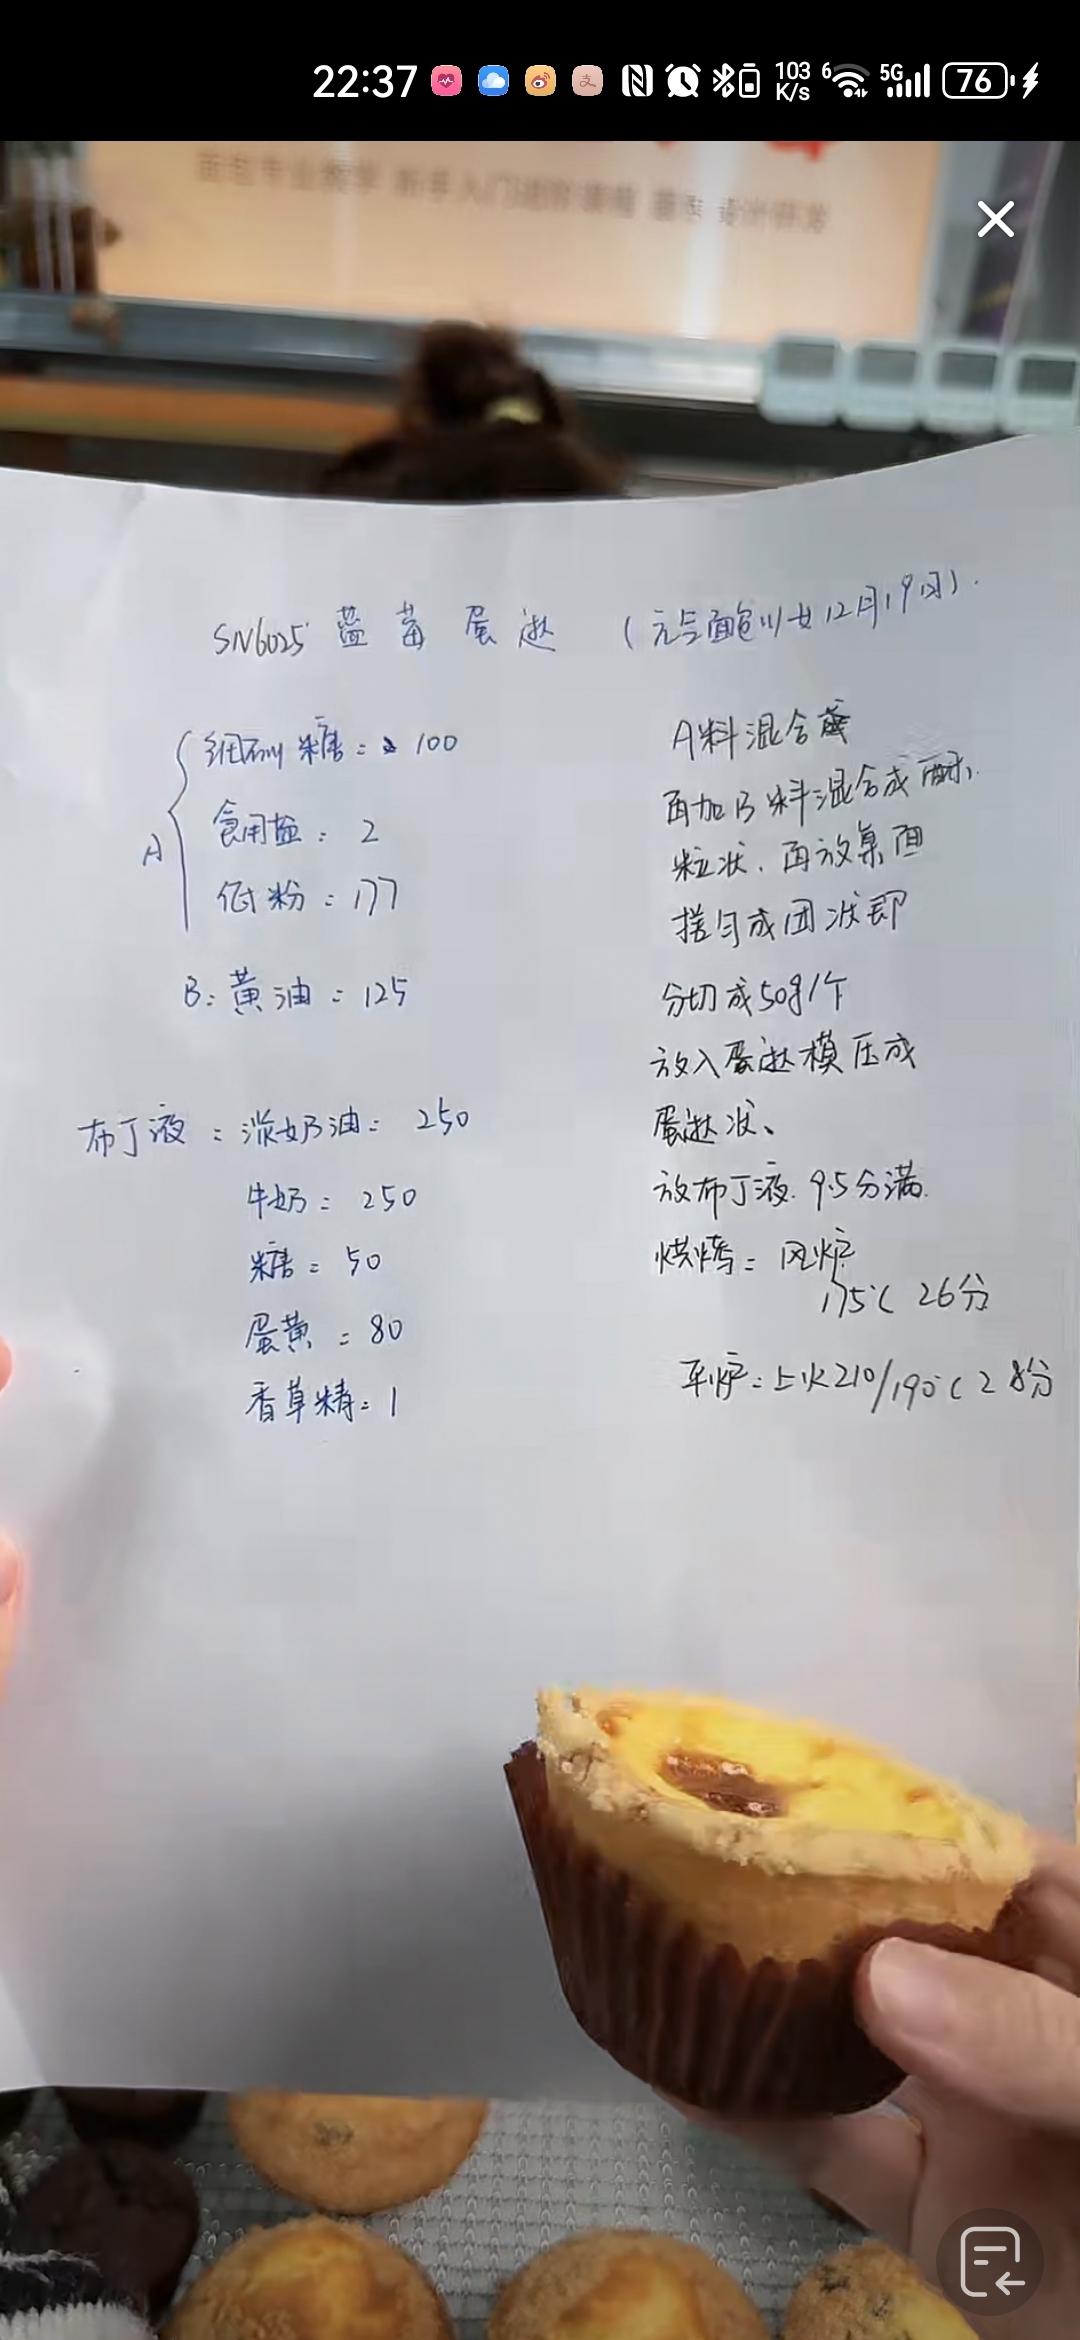 22:37
103 K/s
6
5G
76
SN6025 蓝莓蛋挞 (元气面包少女12月19日).
A
细砂糖: 100
食用盐: 2
低粉: 177
B: 黄油: 125
布丁液: 淡奶油: 250
牛奶: 250
糖: 50
蛋黄: 80
香草精: 1
A料混合
再加B料混合成酥
粒状、再放桌面
搓匀成团状即
分切成50g/个
放入蛋挞模压成
蛋挞状、
放布丁液. 9.5分满.
烘烤: 风炉
175℃ 26分
平炉: 上火210/190℃ 28分